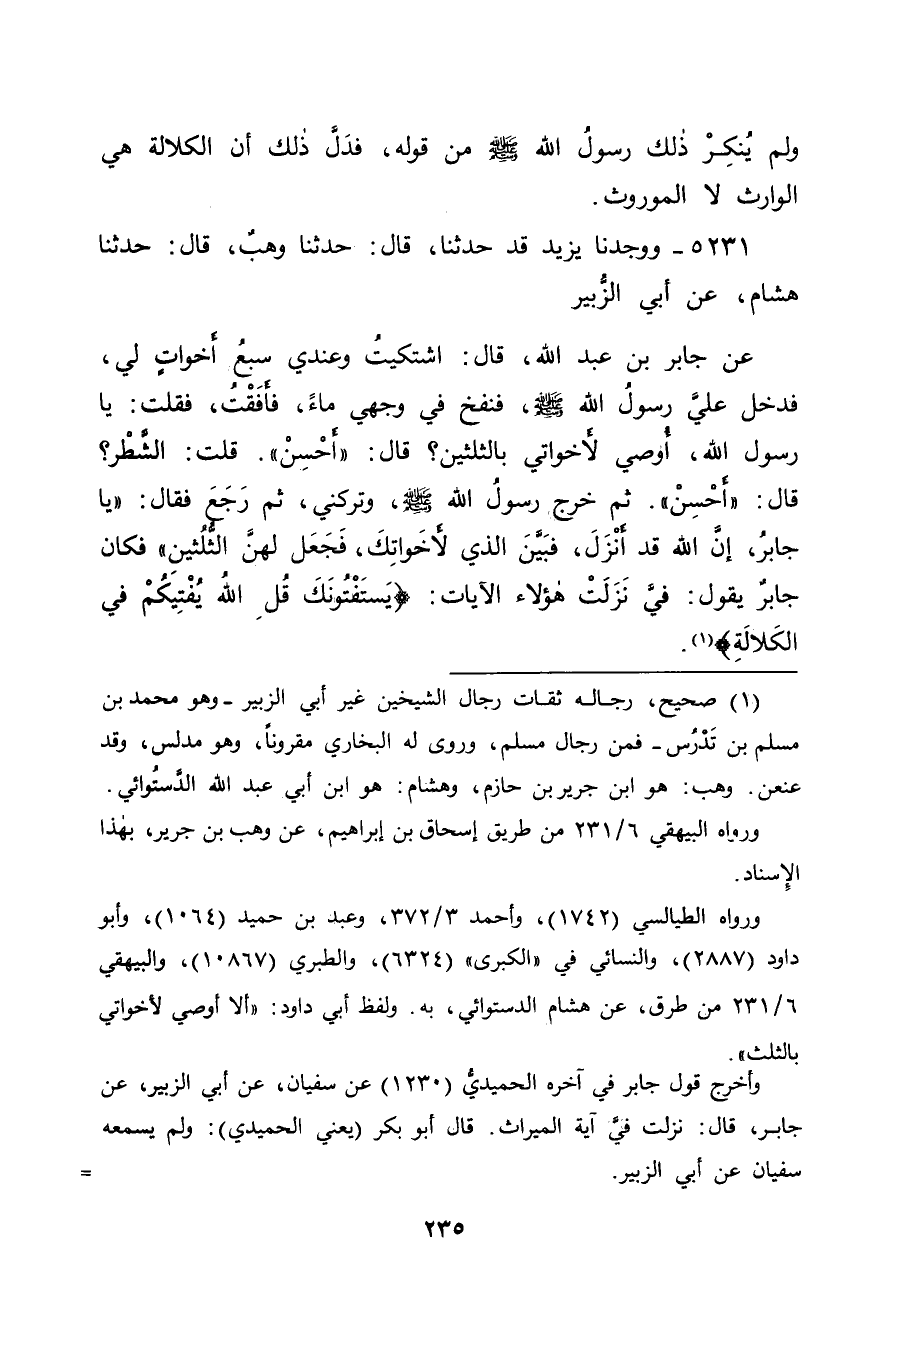 ولم يُنكِـرْ ذٰلك رسولُ الله ﷺ من قوله، فدَلَّ ذٰلك أن الكلالة هي
الوارث لا الموروث.
٥٢٣١ ـ ووجدنا يزيد قد حدثنا، قال: حدثنا وهبٌ، قال: حدثنا
هشام، عن أبي الزُّبير
عن جابر بن عبد الله، قال: اشتكيتُ وعندي سبعُ أَخواتٍ لي،
فدخل عليَّ رسولُ الله ﷺ، فنفخ في وجهي ماءً، فأَفَقْتُ، فقلت: يا
رسول الله، أُوصي لأَخواتي بالثلثين؟ قال: «أَحْسِنْ». قلت: الشَّطْر؟
قال: «أَحْسِنْ». ثم خرج رسولُ الله ﷺ، وتركني، ثم رَجَعَ فقال: «يا
جابرُ، إنَّ الله قد أَنْزَلَ، فبَيَّنَ الذي لأَخَواتِكَ، فَجَعَل لهنَّ الثُّلُثين» فكان
جابرٌ يقول: فيَّ نَزَلَتْ هٰؤلاء الآيات: ﴿يَستَفْتُونَكَ قُلِ اللهُ يُفْتِيَكُمْ في
الكَلالَةِ﴾(١).
(١) صحيح، رجـالـه ثقـات رجال الشيخين غير أبي الزبير ـ وهو محمد بن
مسلم بن تَدْرُس ـ فمن رجال مسلم، وروى له البخاري مقروناً، وهو مدلس، وقد
عنعن. وهب: هو ابن جرير بن حازم، وهشام: هو ابن أبي عبد الله الدَّستُوائي.
ورواه البيهقي ٢٣١/٦ من طريق إسحاق بن إبراهيم، عن وهب بن جرير، بهٰذا
الإسناد.
ورواه الطيالسي (١٧٤٢)، وأحمد ٣٧٢/٣، وعبد بن حميد (١٠٦٤)، وأبو
داود (٢٨٨٧)، والنسائي في «الكبرى» (٦٣٢٤)، والطبري (١٠٨٦٧)، والبيهقي
٢٣١/٦ من طرق، عن هشام الدستوائي، به. ولفظ أبي داود: «ألا أوصي لأخواتي
بالثلث».
وأخرج قول جابر في آخره الحميديُّ (١٢٣٠) عن سفيان، عن أبي الزبير، عن
جابـر، قال: نزلت فيَّ آية الميراث. قال أبو بكر (يعني الحميدي): ولم يسمعه
سفيان عن أبي الزبير. =
٢٣٥